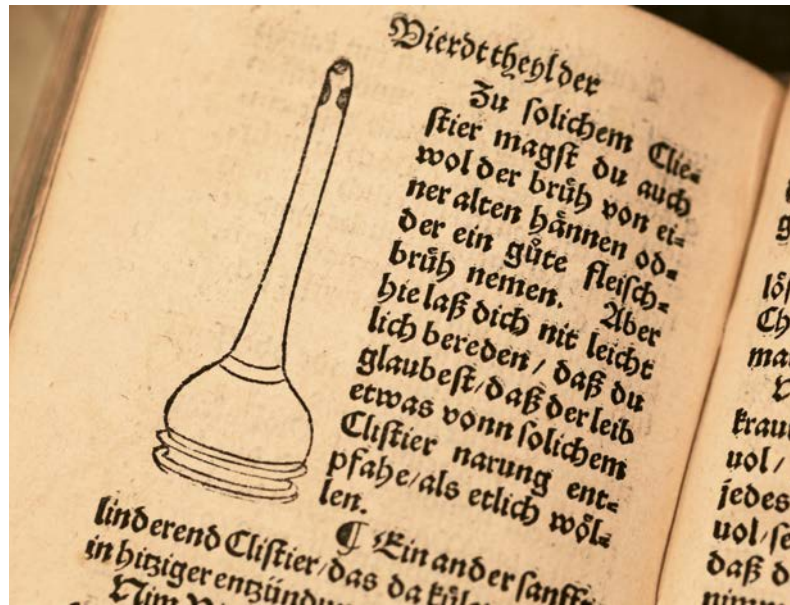 Vierdt theyl der
Zu solichem Clie-
stier magst du auch
wol der brüh von ei-
ner alten hännen od-
der ein gůte fleisch-
brüh nemen. Aber
hie laß dich nit leicht
lich bereden / daß du
glaubest / daß der leib
etwas vonn solichem
Clistier narung ent-
pfahe / als etlich wöl-
len.
¶ Ein ander sanfft
linderend Clistier / das da
in hitziger
Nim
g
löſ
Ch
ma
kraut
uol /
jedes
uol / se
daß d
nimm